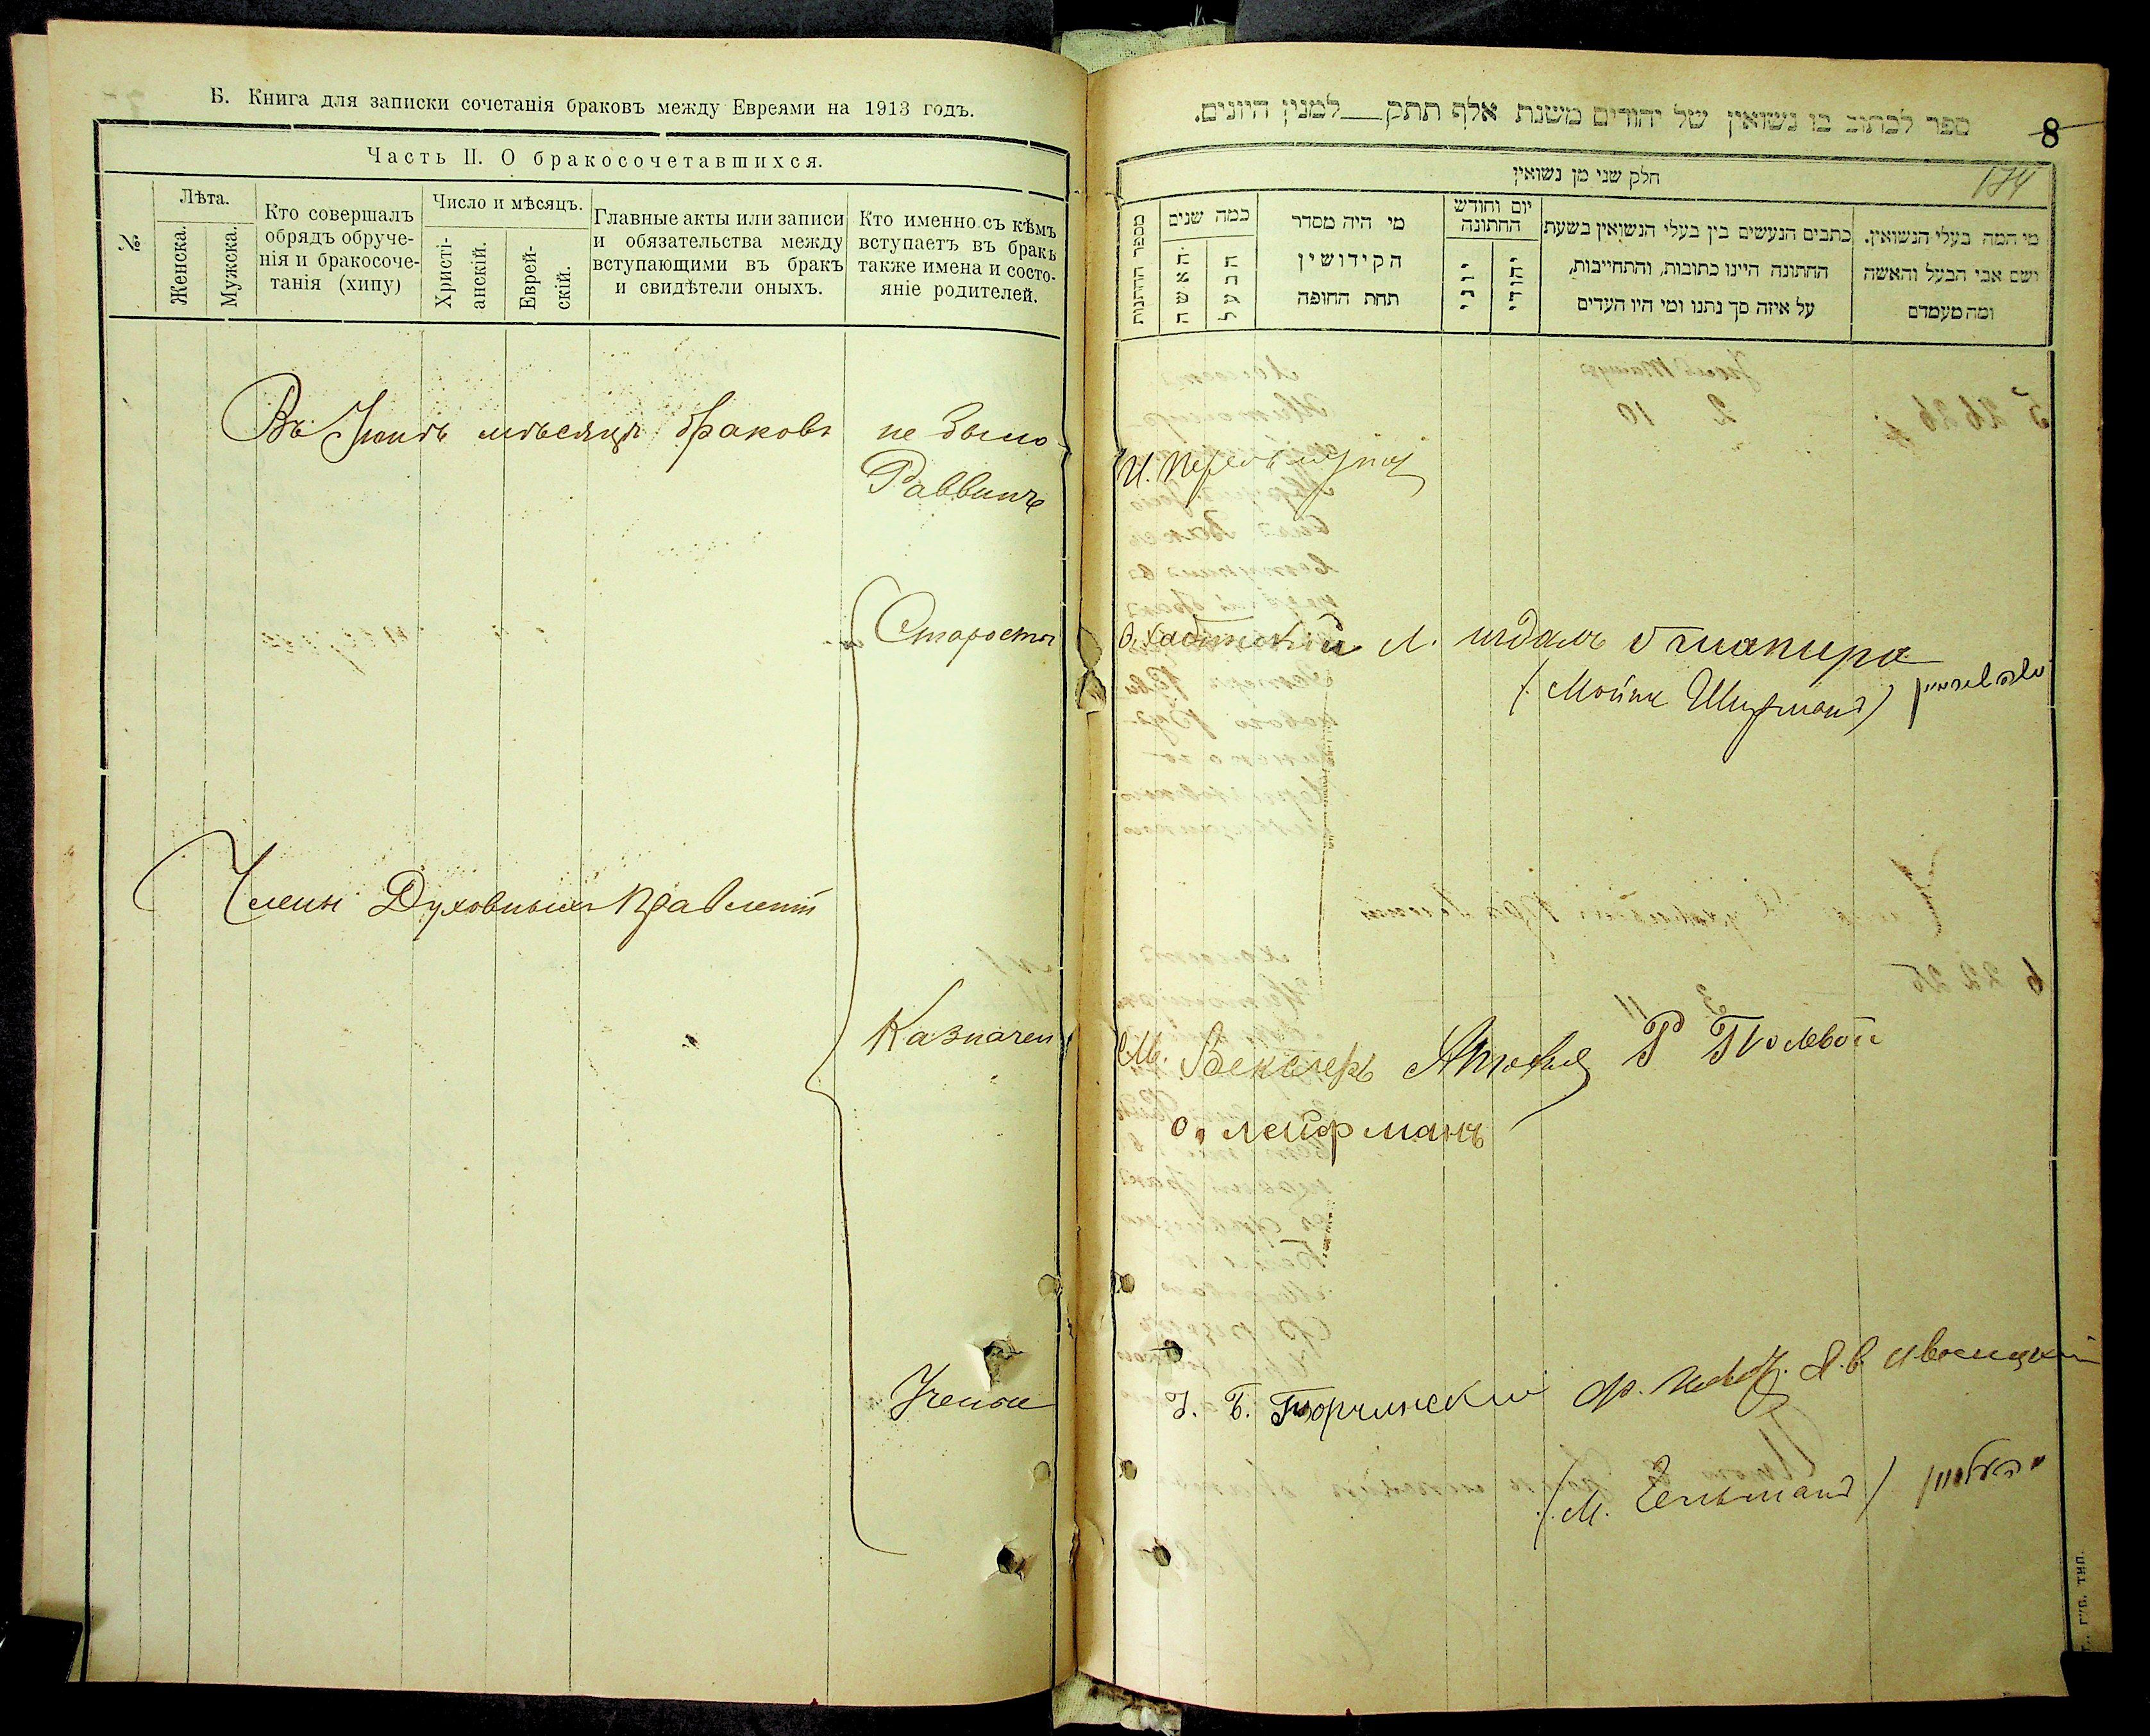 Б. Книга для записки сочетанія браковъ между Евреями на 1913 годъ.
Часть II. О бракосочетавшихся.
№
Лѣта.
Женска.
Мужска.
Кто совершалъ
обрядъ обруче-
нія и бракосоче-
танія (хипу)
Число и мѣсяцъ.
Христі-
анскій.
Еврей-
скій.
Главные акты или записи
и обязательства между
вступающими въ бракъ
и свидѣтели оныхъ.
Кто именно съ кѣмъ
вступаетъ въ бракъ
также имена и состо-
яніе родителей.
Въ Іюнѣ мѣсяцѣ браковъ не было
Раввинъ
Старосты
Члены Духовныхъ Правленій
Казначеи
Ученые
ספר לכתוב בו נשואין של יהודים משנת אלף תתק למנין היונים.
8
174
חלק שני מן נשואין
מספר החתונות
כמה שנים
האשה
הבעל
מי היה מסדר
הקידושין
תחת החופה
יום וחודש
החתונה
יוני
יהודי
כתבים הנעשים בין בעלי הנשואין בשעת
החתונה היינו כתובות, והתחייבות,
על איזה סך נתנו ומי היו העדים
מי המה בעלי הנשואין.
ושם אבי הבעל והאשה
ומה מעמדם
Л. Шапира
(Мойше Шухманъ)
М. Векслеръ Р Полевой
О. Лейфманъ
(М. Гельманъ)